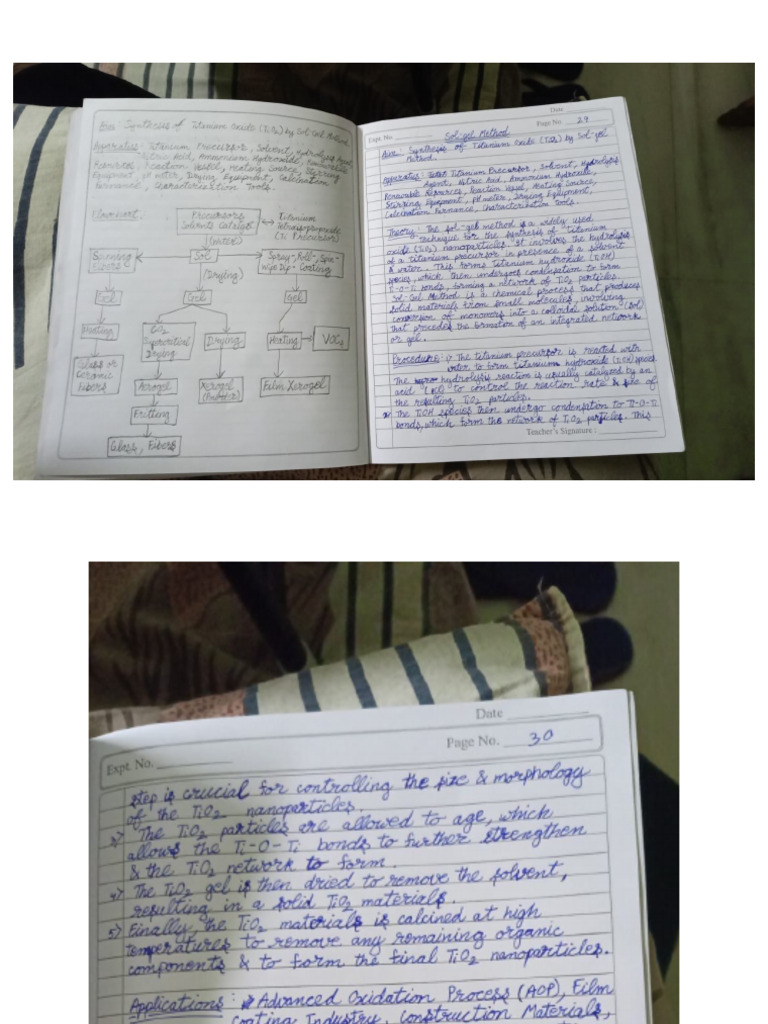 Aim: Synthesis of Titanium Oxide (TiO2) by Sol-Gel Method.
Apparatus: Titanium Precursor, Solvent, Hydrolysis Agent,
Nitric Acid, Ammonium Hydroxide, Renewable
Resources, Reaction Vessel, Heating Source, Stirring
Equipment, pH meter, Drying Equipment, Calcination
Furnance, Characterization Tools.
Flowchart:
Precursors Solvents Catalyst
Titanium Tetraisopropoxide (Ti Precursor)
(Water)
Spinning Fibers
Sol
Spray-, Roll-, Spin- Wipe Dip- Coating
(Drying)
Gel
Gel
Gel
Heating
CO2 Supercritical Drying
Drying
Heating
VOCs
Glass or Ceramic Fibers
Aerogel
Xerogel
Film Xerogel
Glass, Fibers
Date
Expt. No.
Page No. 29
Sol-gel Method
Aim: Synthesis of Titanium Oxide (TiO2) by Sol-gel
Method.
Apparatus: Titanium Precursor, Solvent, Hydrolysis
Agent, Nitric Acid, Ammonium Hydroxide,
Renewable Resources, Reaction Vessel, Heating Source,
Stirring Equipment, PH meter, Drying Equipment,
Calcination Furnance, Characterization Tools.
Theory: The sol-gel method is a widely used
technique for the synthesis of titanium
oxide (TiO2) nanoparticles. It involves the hydrolysis
of a titanium precursor in presence of a solvent
& water. This forms titanium hydroxide (TiOH)
species, which then undergoes condensation to form
Ti-O-Ti bonds, forming a network of TiO2 particles
Sol-Gel Method is a chemical process that produces
solid materials from small molecules, involving
conversion of monomers into a colloidal solution (Sol)
that precedes the formation of an integrated network
or gel.
Procedure: 1) The titanium precursor is reacted with
water to form titanium hydroxide (TiOH) species
The hydrolysis reaction is usually catalyzed by an
acid to control the reaction rate & size of
the resulting TiO2 particles.
2) The TiOH species then undergo condensation to Ti-O-Ti
bonds, which form the network of TiO2 particles. This
Teacher's Signature :
Date
Page No. 30
Expt. No.
step is crucial for controlling the size & morphology
of the TiO2 nanoparticles.
3) The TiO2 particles are allowed to age, which
allows the Ti-O-Ti bonds to further strengthen
& the TiO2 network to form.
4) The TiO2 gel is then dried to remove the solvent,
resulting in a solid TiO2 materials.
5) Finally, the TiO2 materials is calcined at high
temperatures to remove any remaining organic
components & to form the final TiO2 nanoparticles.
Applications: Advanced Oxidation Process (AOP), Film
Coating Industry, Construction Materials,